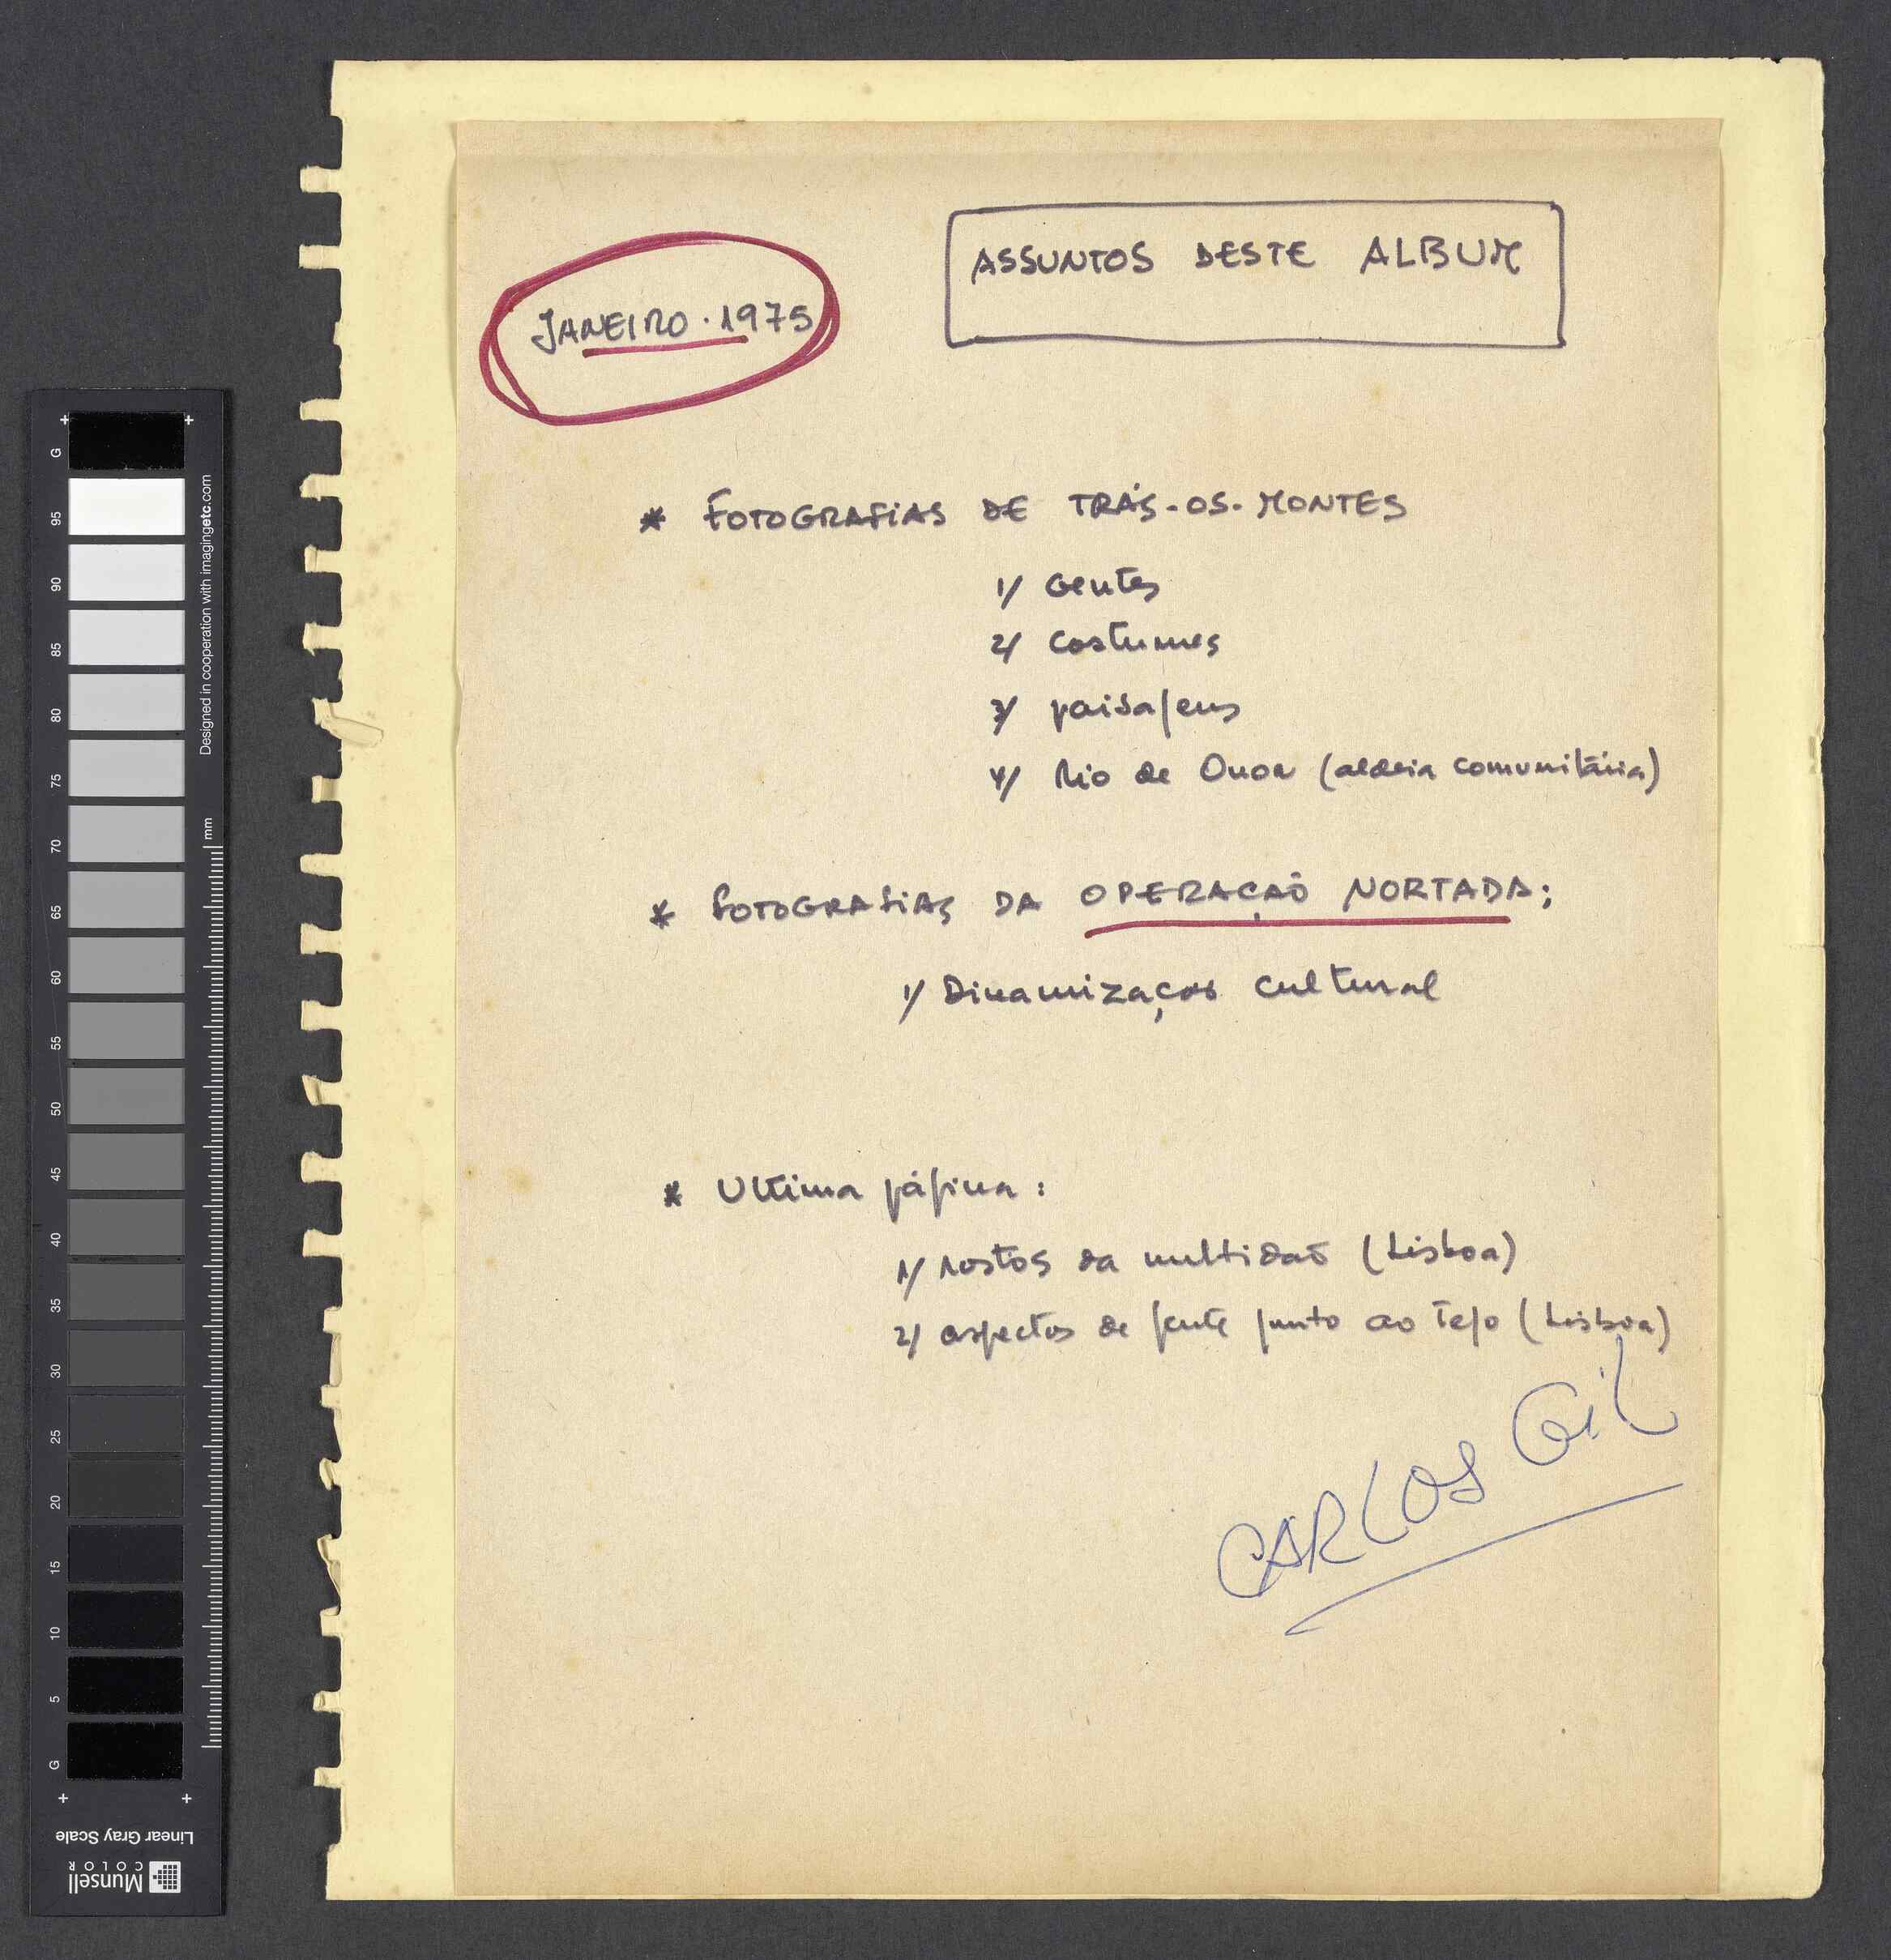 ASSUNTOS DESTE ALBUM
JANEIRO · 1975
* FOTOGRAFIAS DE TRÁS-OS-MONTES
1/ Gentes
2/ costumes
3/ paisajens
4/ Rio de Onor (aldeia comunitária)
* FOTOGRAFIAS DA OPERAÇÃO NORTADA;
1/ Dinamização cultural
* Ultima página :
1/ rostos da multidão (Lisboa)
2/ aspectos de gente junto ao Tejo (Lisboa)
CARLOS GIL
G
95
90
85
80
75
70
65
60
55
50
45
40
35
30
25
20
15
10
5
G
Designed in cooperation with imagingetc.com
mm
Linear Gray Scale
Munsell
COLOR